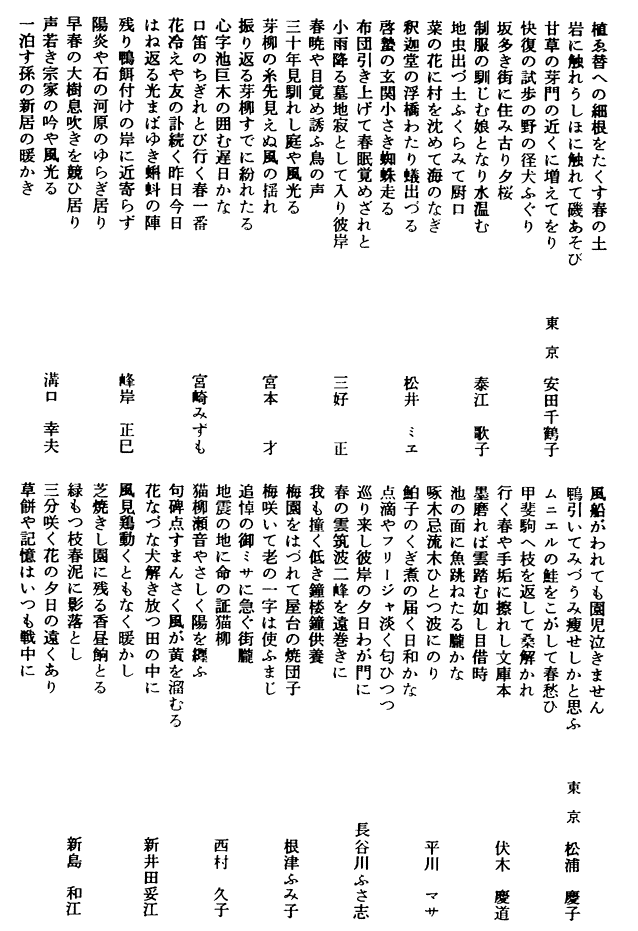 植ゑ替への細根をたくす春の土
岩に触れうしほに触れて磯あそび
甘草の芽門の近くに増えてをり
東京 安田千鶴子
快復の試歩の野の径犬ふぐり
坂多き街に住み古り夕桜
制服の馴じむ娘となり水温む
泰江 歌子
地虫出づ土ふくらみて厨口
菜の花に村を沈めて海のなぎ
釈迦堂の浮橋わたり蟻出づる
松井 ミヱ
啓蟄の玄関小さき蜘蛛走る
布団引き上げて春眠覚めざれと
小雨降る墓地寂として入り彼岸
三好 正
春暁や目覚め誘ふ鳥の声
三十年見馴れし庭や風光る
芽柳の糸先見えぬ風の揺れ
宮本 才
振り返る芽柳すでに紛れたる
心字池巨木の囲む遅日かな
口笛のちぎれとび行く春一番
宮崎みずも
花冷えや友の訃続く昨日今日
はね返る光まばゆき蝌蚪の陣
残り鴨餌付けの岸に近寄らず
峰岸 正巳
陽炎や石の河原のゆらぎ居り
早春の大樹息吹きを競ひ居り
声若き宗家の吟や風光る
溝口 幸夫
一泊す孫の新居の暖かき
風船がわれても園児泣きません
鴨引いてみづうみ痩せしかと思ふ
ムニエルの鮭をこがして春愁ひ
東京 松浦 慶子
甲斐駒へ枝を返して桑解かれ
行く春や手垢に擦れし文庫本
墨磨れば雲踏む如し目借時
伏木 慶道
池の面に魚跳ねたる朧かな
啄木忌流木ひとつ波にのり
鮊子のくぎ煮の届く日和かな
平川 マサ
点滴やフリージャ淡く匂ひつつ
巡り来し彼岸の夕日わが門に
春の雲筑波二峰を遠巻きに
長谷川ふさ志
我も撞く低き鐘楼鐘供養
梅園をはづれて屋台の焼団子
梅咲いて老の一字は使ふまじ
根津ふみ子
追悼の御ミサに急ぐ街朧
地震の地に命の証猫柳
猫柳瀬音やさしく陽を纒ふ
西村 久子
句碑点すまんさく風が黄を溜むる
花なづな犬解き放つ田の中に
風見鶏動くともなく暖かし
新井田妥江
芝焼きし園に残る香昼餉とる
緑もつ枝春泥に影落とし
三分咲く花の夕日の遠くあり
新島 和江
草餅や記憶はいつも戦中に